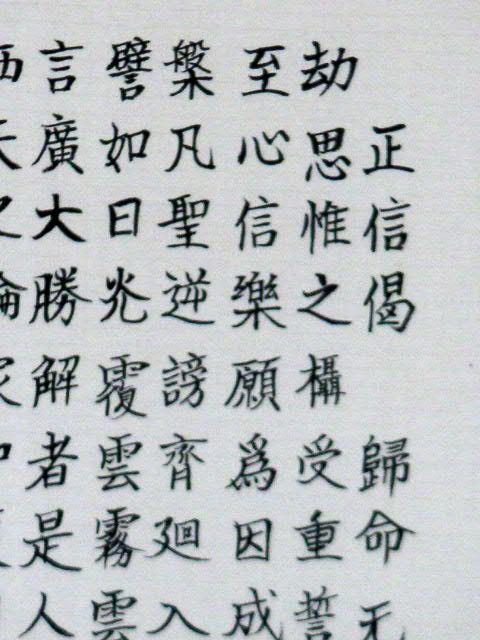 正信偈 歸命无
劫思惟之攝受重誓
至心信樂願爲因成
槃凡聖逆謗齊廻入
譬如日光覆雲霧雲
言廣大勝解者是人